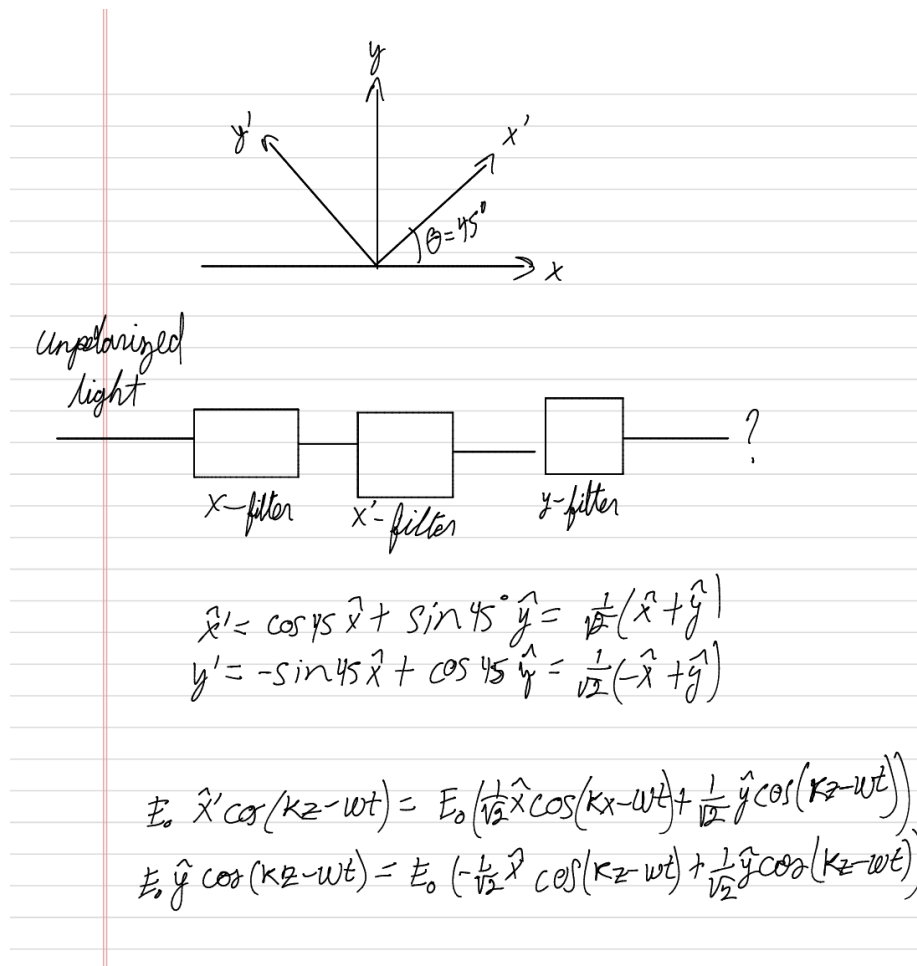 y
y' x'
θ=45°
x
unpolarized
light
?
x-filter x'-filter y-filter
x̂' = cos45 x̂ + sin45° ŷ = 1/√2 (x̂ + ŷ)
y' = -sin45 x̂ + cos45 ŷ = 1/√2 (-x̂ + ŷ)
E₀ x̂' cos(kz-wt) = E₀ (1/√2 x̂ cos(kx-wt) + 1/√2 ŷ cos(kz-wt))
E₀ ŷ cos(kz-wt) = E₀ (-1/√2 x̂ cos(kz-wt) + 1/√2 ŷ cos(kz-wt)